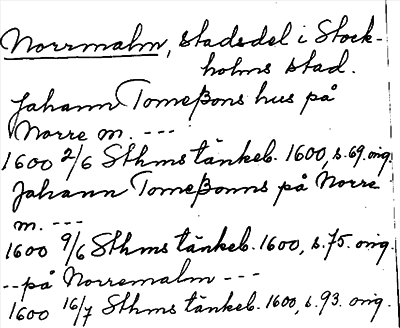 Norrmalm, stadsdel i Stock-
holms stad.
Johann Tomeßons hus på
Norre m. ---
1600 2/6 Sthms tänkeb. 1600, s. 69. orig.
Johann Tomeßonns på Norre
m. ---
1600 9/6 Sthms tänkeb. 1600, s. 75. orig.
--på Norremalm ---
1600 16/7 Sthms tänkeb. 1600, s. 93. orig.